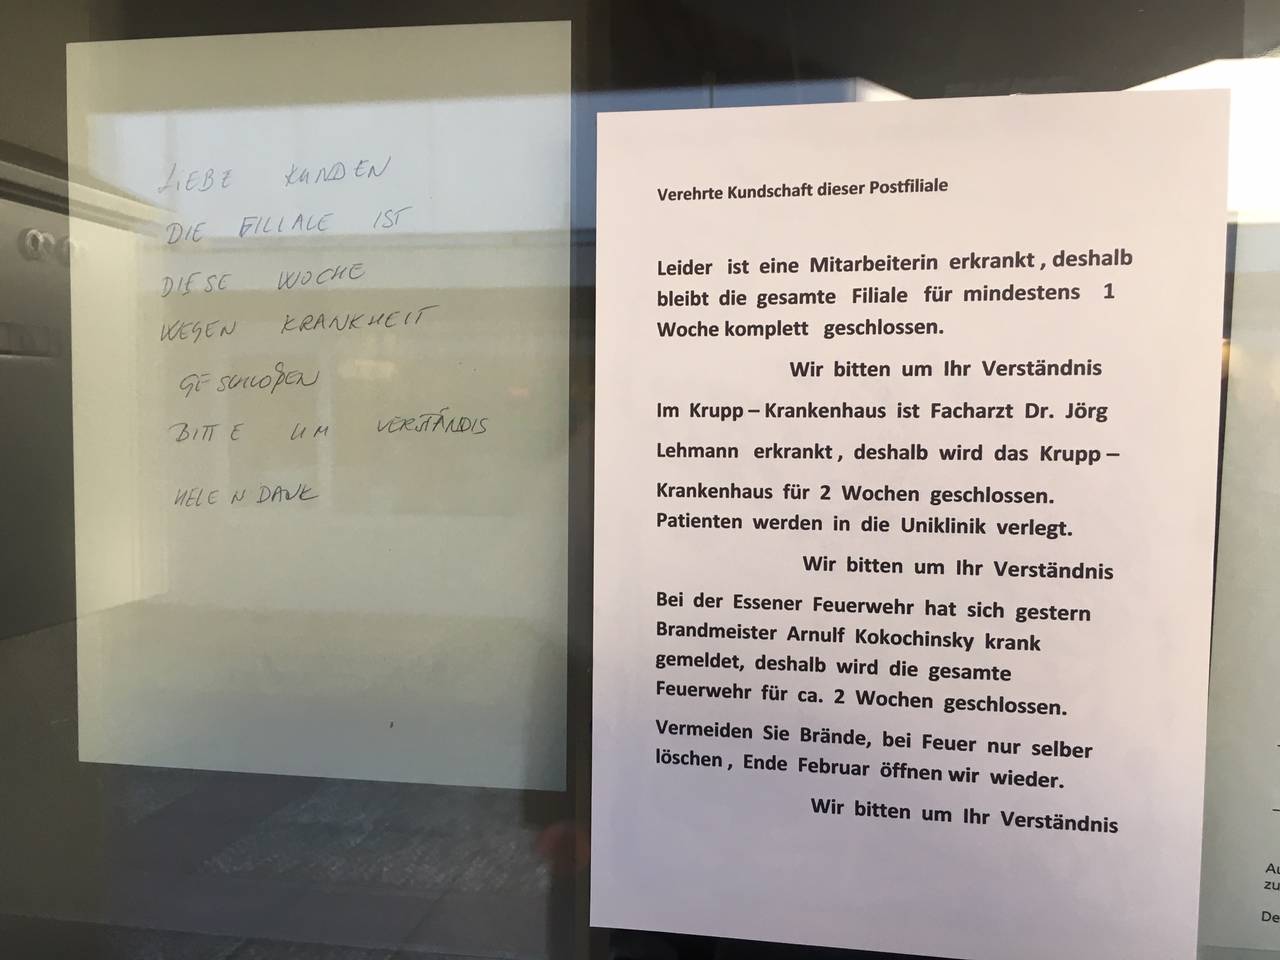 LIEBE KUNDEN
DIE FILIALE IST
DIESE WOCHE
WEGEN KRANKHEIT
GESCHLOßEN
BITTE UM VERSTÄNDIS
VIELEN DANK
Verehrte Kundschaft dieser Postfiliale
Leider ist eine Mitarbeiterin erkrankt, deshalb
bleibt die gesamte Filiale für mindestens 1
Woche komplett geschlossen.
Wir bitten um Ihr Verständnis
Im Krupp – Krankenhaus ist Facharzt Dr. Jörg
Lehmann erkrankt, deshalb wird das Krupp –
Krankenhaus für 2 Wochen geschlossen.
Patienten werden in die Uniklinik verlegt.
Wir bitten um Ihr Verständnis
Bei der Essener Feuerwehr hat sich gestern
Brandmeister Arnulf Kokochinsky krank
gemeldet, deshalb wird die gesamte
Feuerwehr für ca. 2 Wochen geschlossen.
Vermeiden Sie Brände, bei Feuer nur selber
löschen, Ende Februar öffnen wir wieder.
Wir bitten um Ihr Verständnis
zu
De